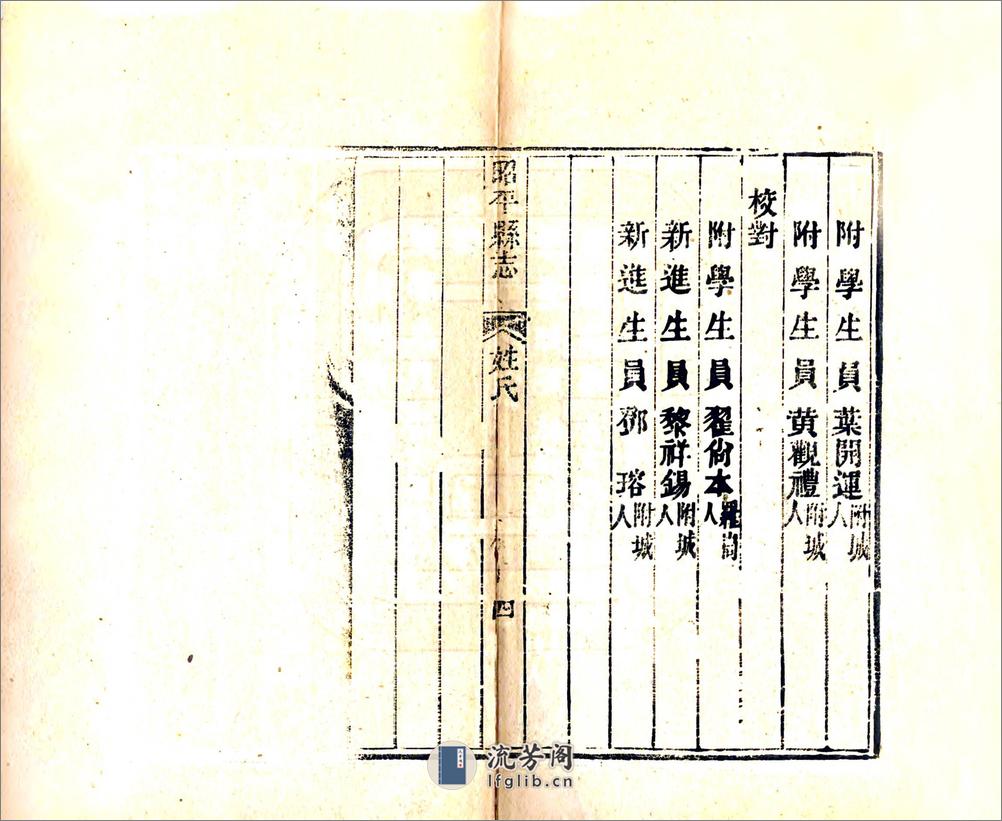 附學生員葉開運附城人
附學生員黄觀禮附城人
校對
附學生員翟尙本羅尙人
新進生員黎祥錫附城人
新進生員鄧瑢附城人
昭平縣志
姓氏
四
流芳阁
lfglib.cn